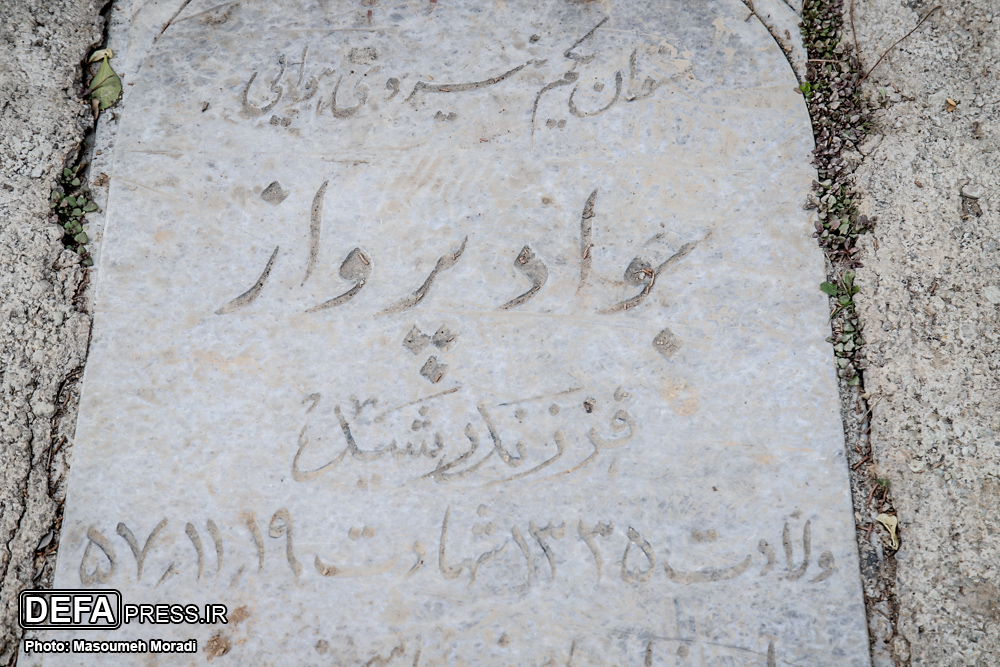 ستوان یکم نیروی هوایی
جواد پرواز
فرزند رشید
ولادت ۱۳۳۵ شهادت ۵۷,۱۱,۱۹
DEFAPRESS.IR
Photo: Masoumeh Moradi